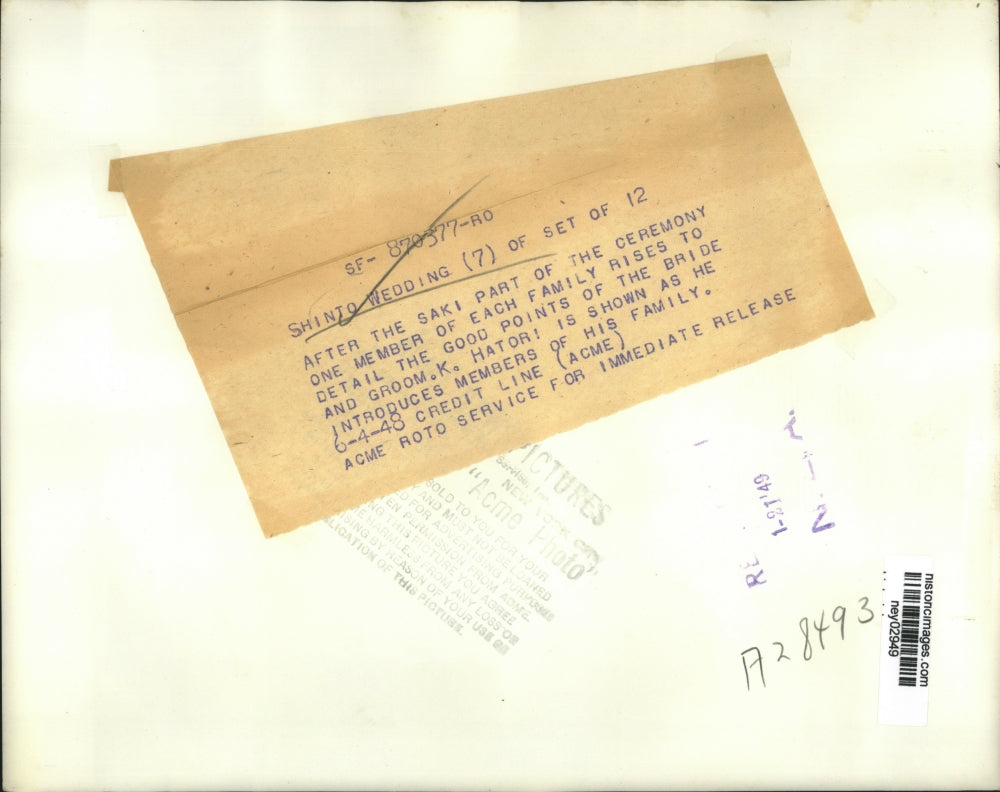 SF- 870377-RO
SHINTO WEDDING (7) OF SET OF 12
AFTER THE SAKI PART OF THE CEREMONY
ONE MEMBER OF EACH FAMILY RISES TO
DETAIL THE GOOD POINTS OF THE BRIDE
AND GROOM.K. HATORI IS SHOWN AS HE
INTRODUCES MEMBERS OF HIS FAMILY.
6-4-48 CREDIT LINE (ACME)
ACME ROTO SERVICE FOR IMMEDIATE RELEASE
PICTURES
NEW YORK CITY
"Acme Photo"
SOLD TO YOU FOR YOUR
AND MUST NOT BE LOANED
FOR ADVERTISING PURPOSES
PERMISSION FROM ACME.
THIS PICTURE YOU AGREE
HARMLESS FROM ANY LOSS OR
BY REASON OF YOUR USE OR
PUBLICATION OF THIS PICTURE.
1-21'49
A28493
historicimages.com
ney02949